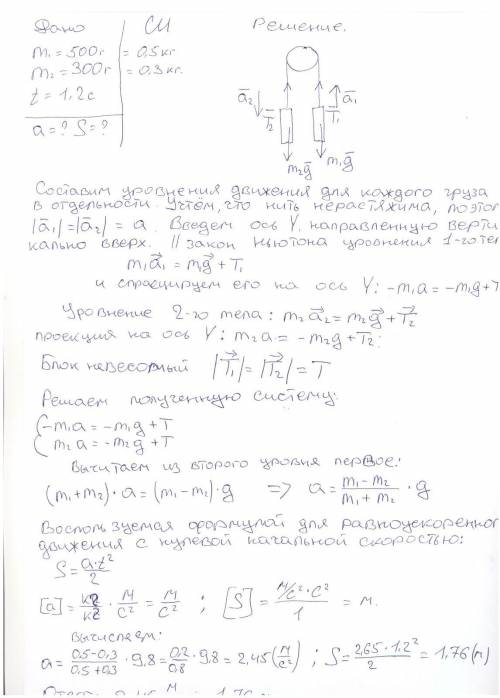 Дано
СИ
Решение.
m₁ = 500г = 0,5кг
m₂ = 300г = 0,3кг.
t = 1,2с
a = ? S = ?
a̅₂ T̅₂ T̅₁ a̅₁
m₂g̅ m₁g̅
Составим уровнения движения для каждого груза
в отдельности. Учтём, что нить нерастяжима, поэтом
|a̅₁| = |a̅₂| = a. Введем ось Y, направленную верти
кально вверх. II закон Ньютона уровнения 1-го те
m₁a⃗₁ = m₁g⃗ + T₁
и спроецируем его на ось Y: -m₁a = -m₁g + T
Уровнение 2-го тела: m₂a⃗₂ = m₂g⃗ + T⃗₂
проекция на ось Y: m₂a = -m₂g + T₂:
Блок невесомый |T⃗₁| = |T⃗₂| = T
Решаем полученную систему:
{-m₁a = -m₁g + T
{m₂a = -m₂g + T
Вычитаем из второго уровня первое:
(m₁+m₂)·a = (m₁-m₂)·g => a = (m₁-m₂)/(m₁+m₂) · g
Воспользуемая формулой для равноускоренног
движения с нулевой начальной скоростью:
S = a·t²/2
[a] = кг/кг · м/с² = м/с² ; [S] = (м/с²·с²)/1 = м.
Вычисляем:
a = (0,5-0,3)/(0,5+0,3) · 9,8 = 0,2/0,8 · 9,8 = 2,45 (м/с²) ; S = 2,65·1,2²/2 = 1,76 (м)